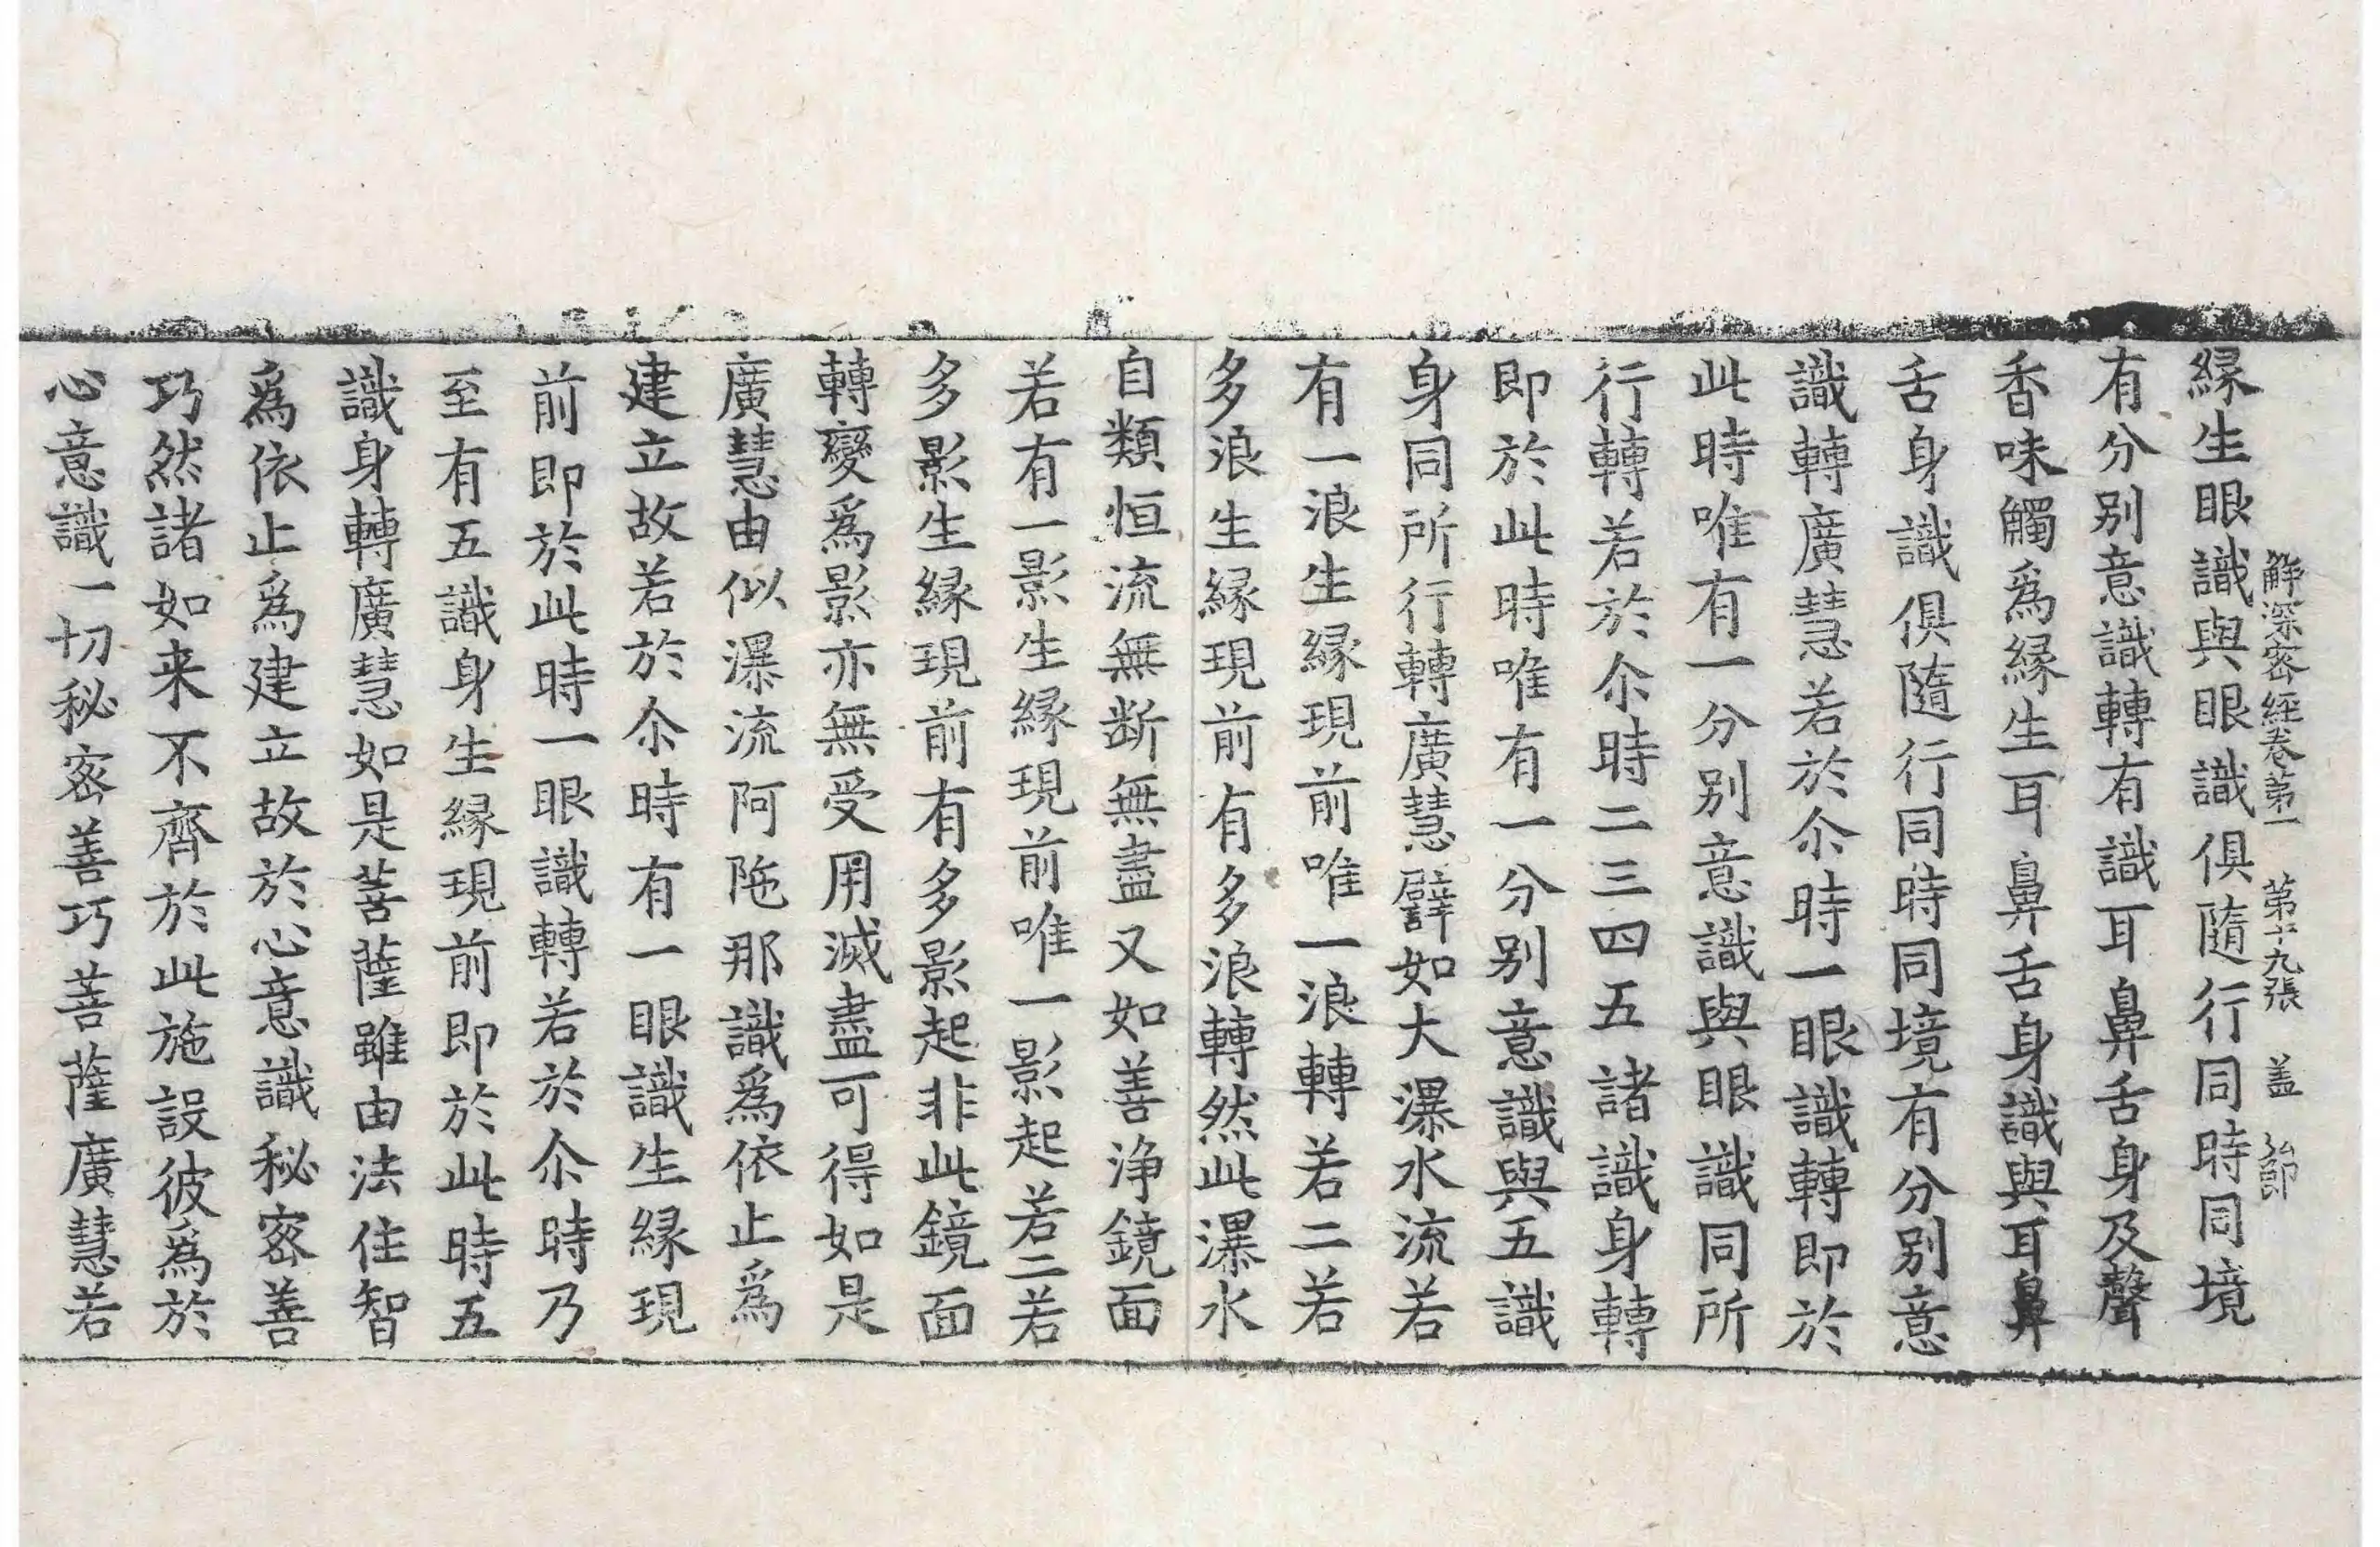 解深密經卷第一　第十九張　盖　
緣生眼識與眼識俱隨行同時同境
有分別意識轉有識耳鼻舌身及聲
香味觸爲緣生耳鼻舌身識與耳鼻
舌身識俱隨行同時同境有分別意
識轉廣慧若於尒時一眼識轉即於
此時唯有一分別意識與眼識同所
行轉若於尒時二三四五諸識身轉
即於此時唯有一分別意識與五識
身同所行轉廣慧譬如大瀑水流若
有一浪生緣現前唯一浪轉若二若
多浪生緣現前有多浪轉然此瀑水
自類恒流無断無盡又如善淨鏡面
若有一影生緣現前唯一影起若二若
多影生緣現前有多影起非此鏡面
轉變爲影亦無受用滅盡可得如是
廣慧由似瀑流阿陁那識爲依止爲
建立故若於尒時有一眼識生緣現
前即於此時一眼識轉若於尒時乃
至有五識身生緣現前即於此時五
識身轉廣慧如是菩薩雖由法住智
爲依止爲建立故於心意識秘密善
巧然諸如来不齊於此施設彼爲於
心意識一切秘密善巧菩薩廣慧若